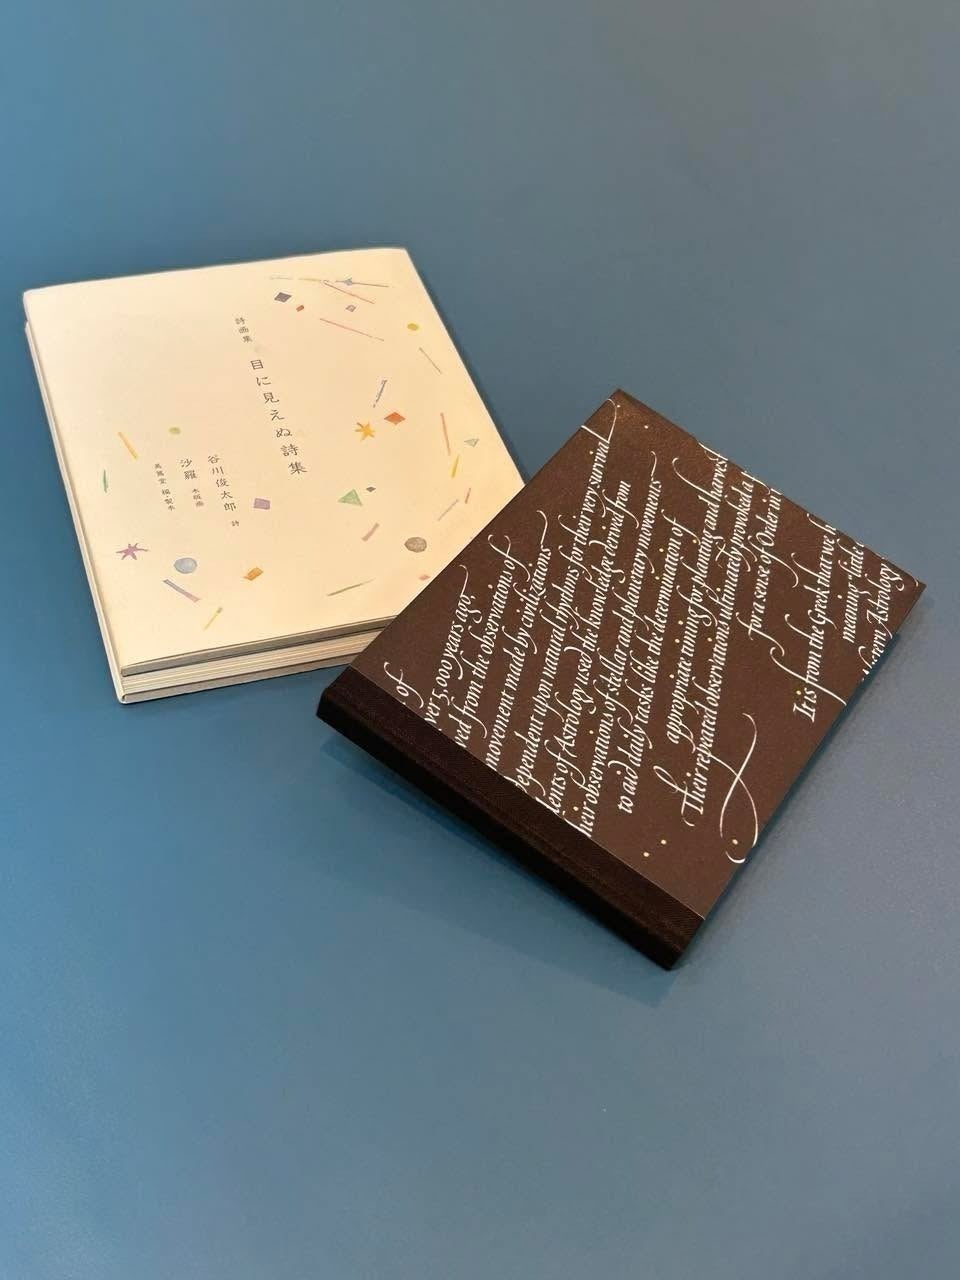 詩画集
目に見えぬ詩集
谷川俊太郎 詩
沙羅 木版画
美篶堂 編・製本
of
over 5,000 years ago,
from the observations of
movement made by civilizations
dependent upon natural rhythms for their very survival.
of Astrology used the knowledge derived from
their observations of stellar and planetary movements
to aid daily tasks like the determination of
appropriate timing for planting and
Their repeated observations ultimately provoked a
for a sense of Order in
It is from the Greek that we
meaning
Astrology